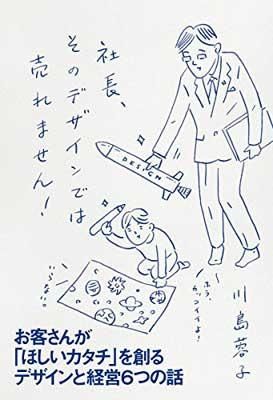 社長、
そのデザインでは
売れません！
DESIGN
ほら、
カッコイイよ！
いらないっ
川島蓉子
お客さんが
「ほしいカタチ」を創る
デザインと経営6つの話